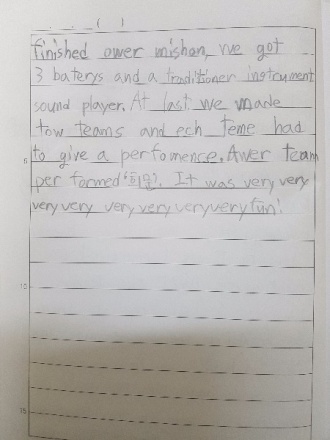 . . . ( )
finished ower mishon, we got
3 baterys and a tranditioner instrument
sound player. At last we made
tow teams and ech teme had
5 to give a perfomence. Awer team
per formed '띄움'. It was very very
very very very very very very fun!
10
15